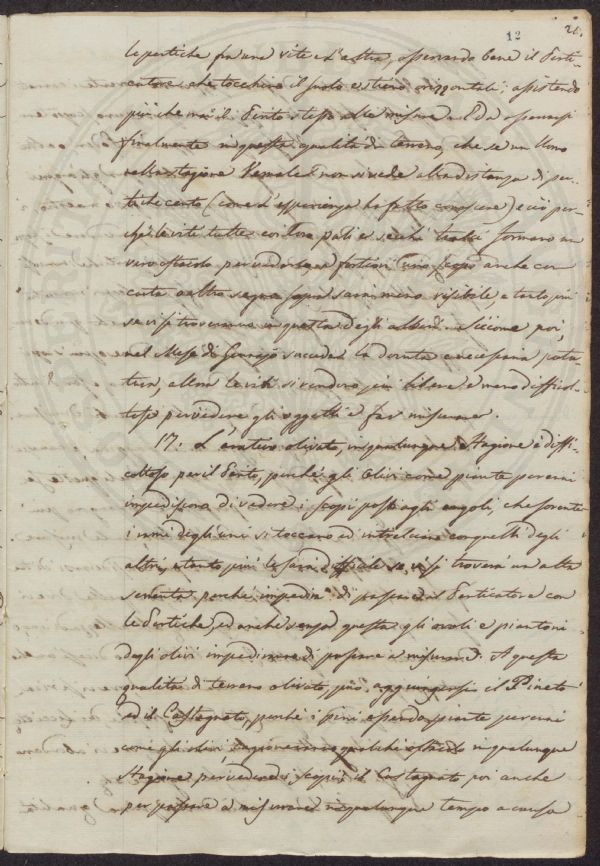 12 26.
le pertiche fra una vite e l'altra, osservando bene il Perti-
catore che tocchino il suolo e stieno orizzontali; assistendo
più che mai il Perito stesso alle misure. Ed a osservarsi
finalmente in questa qualità di terreno, che se un Uomo
nella stagione Vernale non si vede alla distanza di per-
tiche cento (come l'esperienza ha fatto conoscere) e ciò per-
chè le viti tutte con loro pali e secchi tralci formano un
vero ostacolo per vederlo, a fortiori uno scopo anche con
carta o altro segno sopra sarà meno visibile e tanto più
se vi si troveranno in questa degli alberi. Siccome poi,
nel Mese di Gennajo succede la dovuta necessaria pota-
tura, allora le viti si rendono più libere e meno difficol-
tose per vedere gli oggetti e far misurare.
17. L'arativo olivato, in qualunque Stagione è diffi-
coltoso per il Perito, perchè gli Olivi come piante perenni
impediscono di vedere i scopi posti agli angoli, che sovente
i rami degli uni si toccano ed intrelciano con quelli degli
altri, e tanto più le sarà difficile se vi si troverà un'altra
sementa perchè impedirà di passare il Perticatore con
le Pertiche, ed anche senza questa gli ovoli e piantoni
degli olivi impediranno di passare a misurare. A questa
qualità di terreno olivato, può aggiungersi il Pineto
ed il Castagnato, perchè i pini essendo piante perenni
come gli olivi, cagioneranno qualche ostacolo in qualunque
Stagione per vedere i scopi; il Castagnato poi anche
per passare a misurare in qualunque tempo a causa